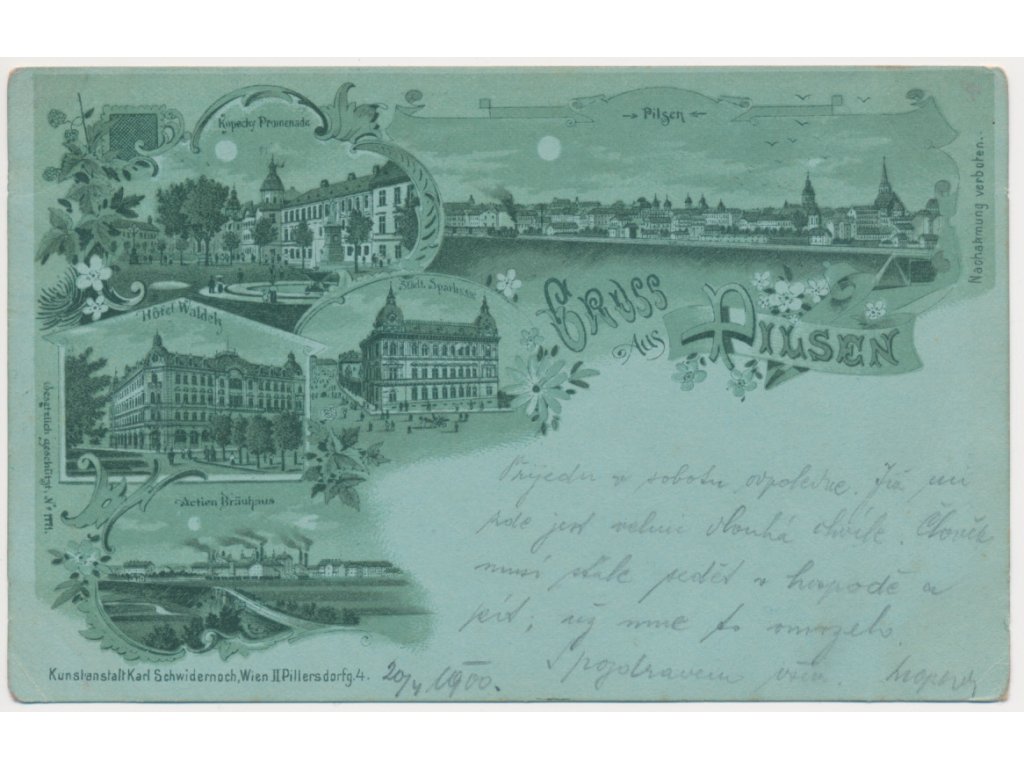 Kopecky Promenade
Pilsen
Nachahmung verboten.
Städt. Sparkasse
Hôtel Waldek
Gruss
Aus
Pilsen
Gesetzlich geschützt. No 1771.
Actien Bräuhaus
Přijedu v sobotu odpoledne. Již mi
zde jest velmi dlouhá chvíle. Člověk
musí stále sedět v hospodě a
pít, až mne to omrzelo.
S pozdravem všem
Kunstanstalt Karl Schwidernoch, Wien II Pillersdorfg. 4.
20/4 1900.